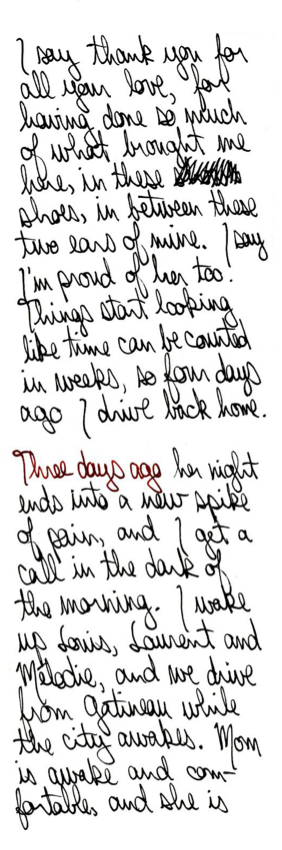 I say thank you for
all your love, for
having done so much
of what brought me
here, in these
shoes, in between these
two ears of mine. I say
I'm proud of her too.
Things start looking
like time can be counted
in weeks, so four days
ago I drive back home.
Three days ago her night
ends into a new spike
of pain, and I get a
call in the dark of
the morning. I wake
up Loris, Laurent and
Mélodie, and we drive
from Gatineau while
the city awakes. Mom
is awake and com-
fortable, and she is